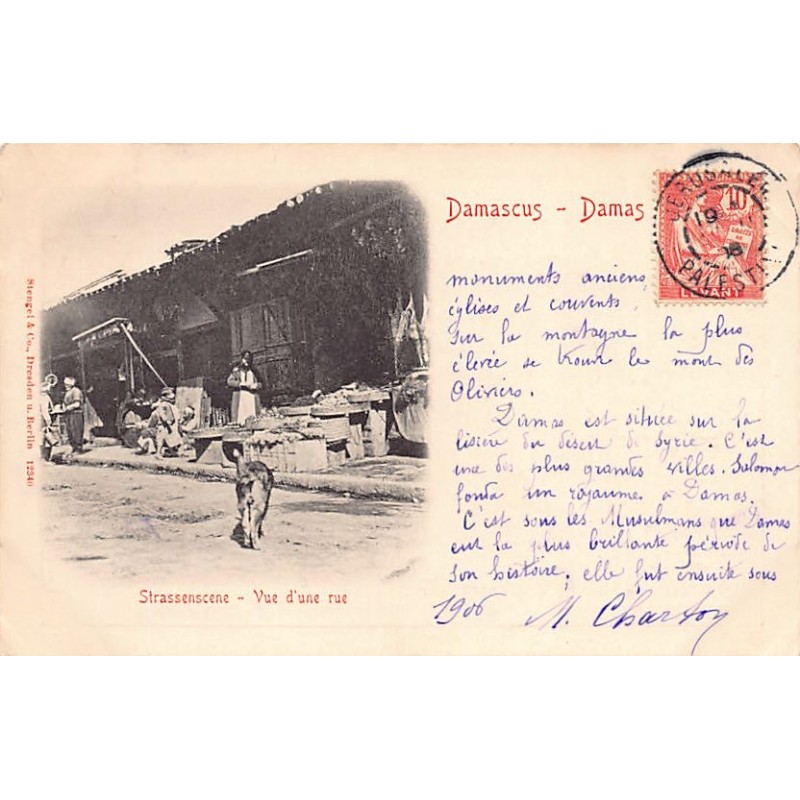 Damascus - Damas
10
LEVANT
JERUSALEM
19
PALESTINE
monuments anciens,
églises et couvents.
Sur la montagne la plus
élevée se trouve le mont des
Oliviers.
Damas est située sur la
lisière du désert de Syrie. C'est
une des plus grandes villes. Salomon
fonda un royaume à Damas.
C'est sous les Musulmans que Damas
eut la plus brillante période de
son histoire, elle fut ensuite sous
1906 M. Charton
Strassenscene - Vue d'une rue
Stengel & Co., Dresden u. Berlin 12340